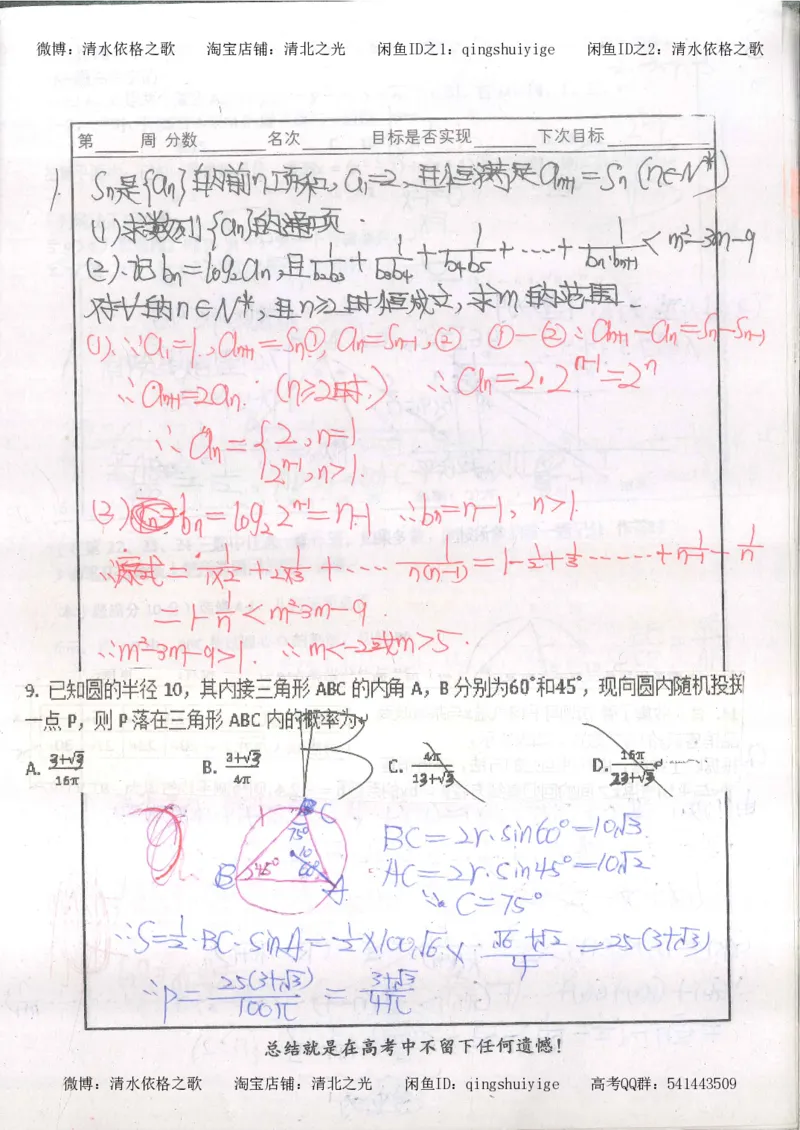 微博：清水依格之歌 淘宝店铺：清北之光 闲鱼ID之1：qingshuiyige 闲鱼ID之2：清水依格之歌
第____周 分数______ 名次______ 目标是否实现______ 下次目标__________
1. Sn是{an}的前n项和，a1=2，且恒满足an+1=Sn(n∈N*)
(1)求数列{an}的通项．
(2).记bn=log2an，且1/b2b3+1/b3b4+1/b4b5+……+1/bn·bn+1<m²-3m-9
对∀的n∈N*，且n≥2时恒成立，求m的范围．
(1).∵a1=1,an+1=Sn①, an=Sn-1,② ①-②∴an+1-an=Sn-Sn-1
∴an+1=2an．(n≥2时，) ∴an=2·2ⁿ⁻¹=2ⁿ
∴an={2,n=1
2ⁿ⁻¹,n>1.
(2) bn=log₂2ⁿ⁻¹=n-1 ∴bn=n-1, n>1.
∴原式=1/1×2+1/2×3+……1/n(n-1)=1-1/2+1/3……+1/n-1-1/n
=1-1/n<m²-3m-9
∴m²-3m-9>1. ∴m<-2或m>5.
9. 已知圆的半径 10，其内接三角形 ABC 的内角 A，B 分别为60°和45°，现向圆内随机投掷
一点 P，则 P 落在三角形 ABC 内的概率为
A. 3+√3/16π B. 3+√3/4π C. 4π/13+√3 D. 16π/23+√3
C
75°
10
B 45° 60° A
BC=2r·sin60°=10√3
AC=2r·sin45°=10√2
∴C=75°
∴S=1/2·BC·sinA=1/2×100√6×·√6+√2/4=25(3+√3)
∴P=25(3+√3)/100π=3+√3/4π
总结就是在高考中不留下任何遗憾！
微博：清水依格之歌 淘宝店铺：清北之光 闲鱼ID：qingshuiyige 高考QQ群：541443509